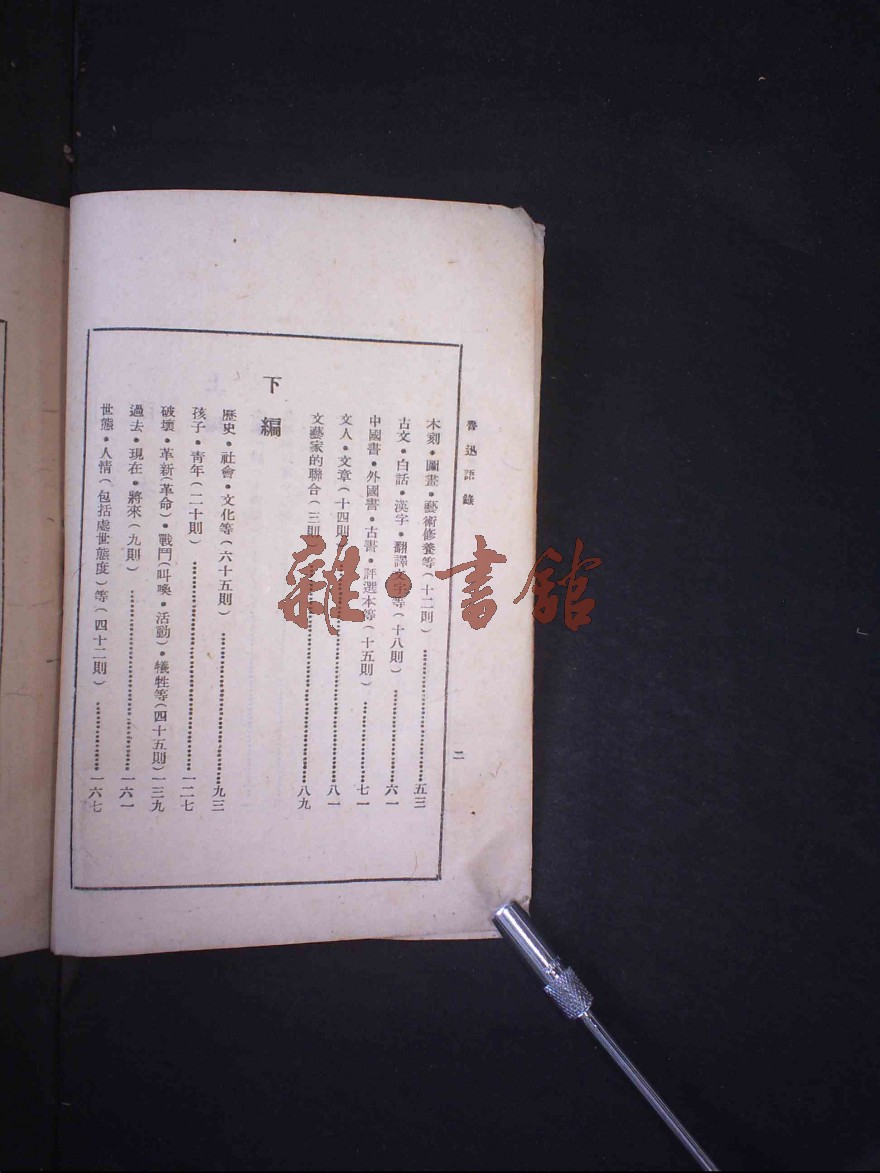 魯迅語錄
二
木刻•圖畫•藝術修養等(十二則)……五三
古文•白話•漢字•翻譯文字等(十八則)……六一
中國書•外國書•古書•評選本等(十五則)……七一
文人•文章(十四則)……八一
文藝家的聯合(三則)……八九
下編
歷史•社會•文化等(六十五則)……九三
孩子•青年(二十則)……一二七
破壞•革新(革命)•戰鬥(叫喚•活動)•犧牲等(四十五則)一三九
過去•現在•將來(九則)……一六一
世態•人情(包括處世態度)等(四十二則)……一六七
雜•書館